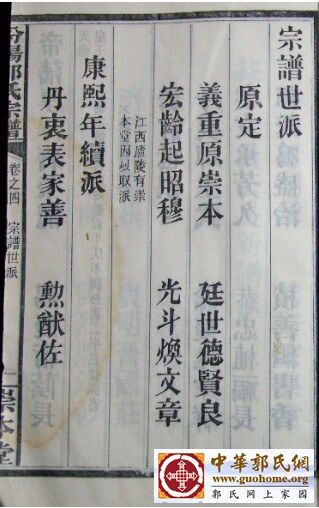 宗譜世派
原定
義重原崇本 廷世德賢良
宏齡起昭穆 光斗煥文章
江西廬陵有崇
本堂因取派
康熙年續派
丹衷表家善 勲猷佐
汾陽郭氏宗譜 卷之四 宗譜世派 崇本堂
中華郭氏網
www.guohome.org
郭氏网上家园